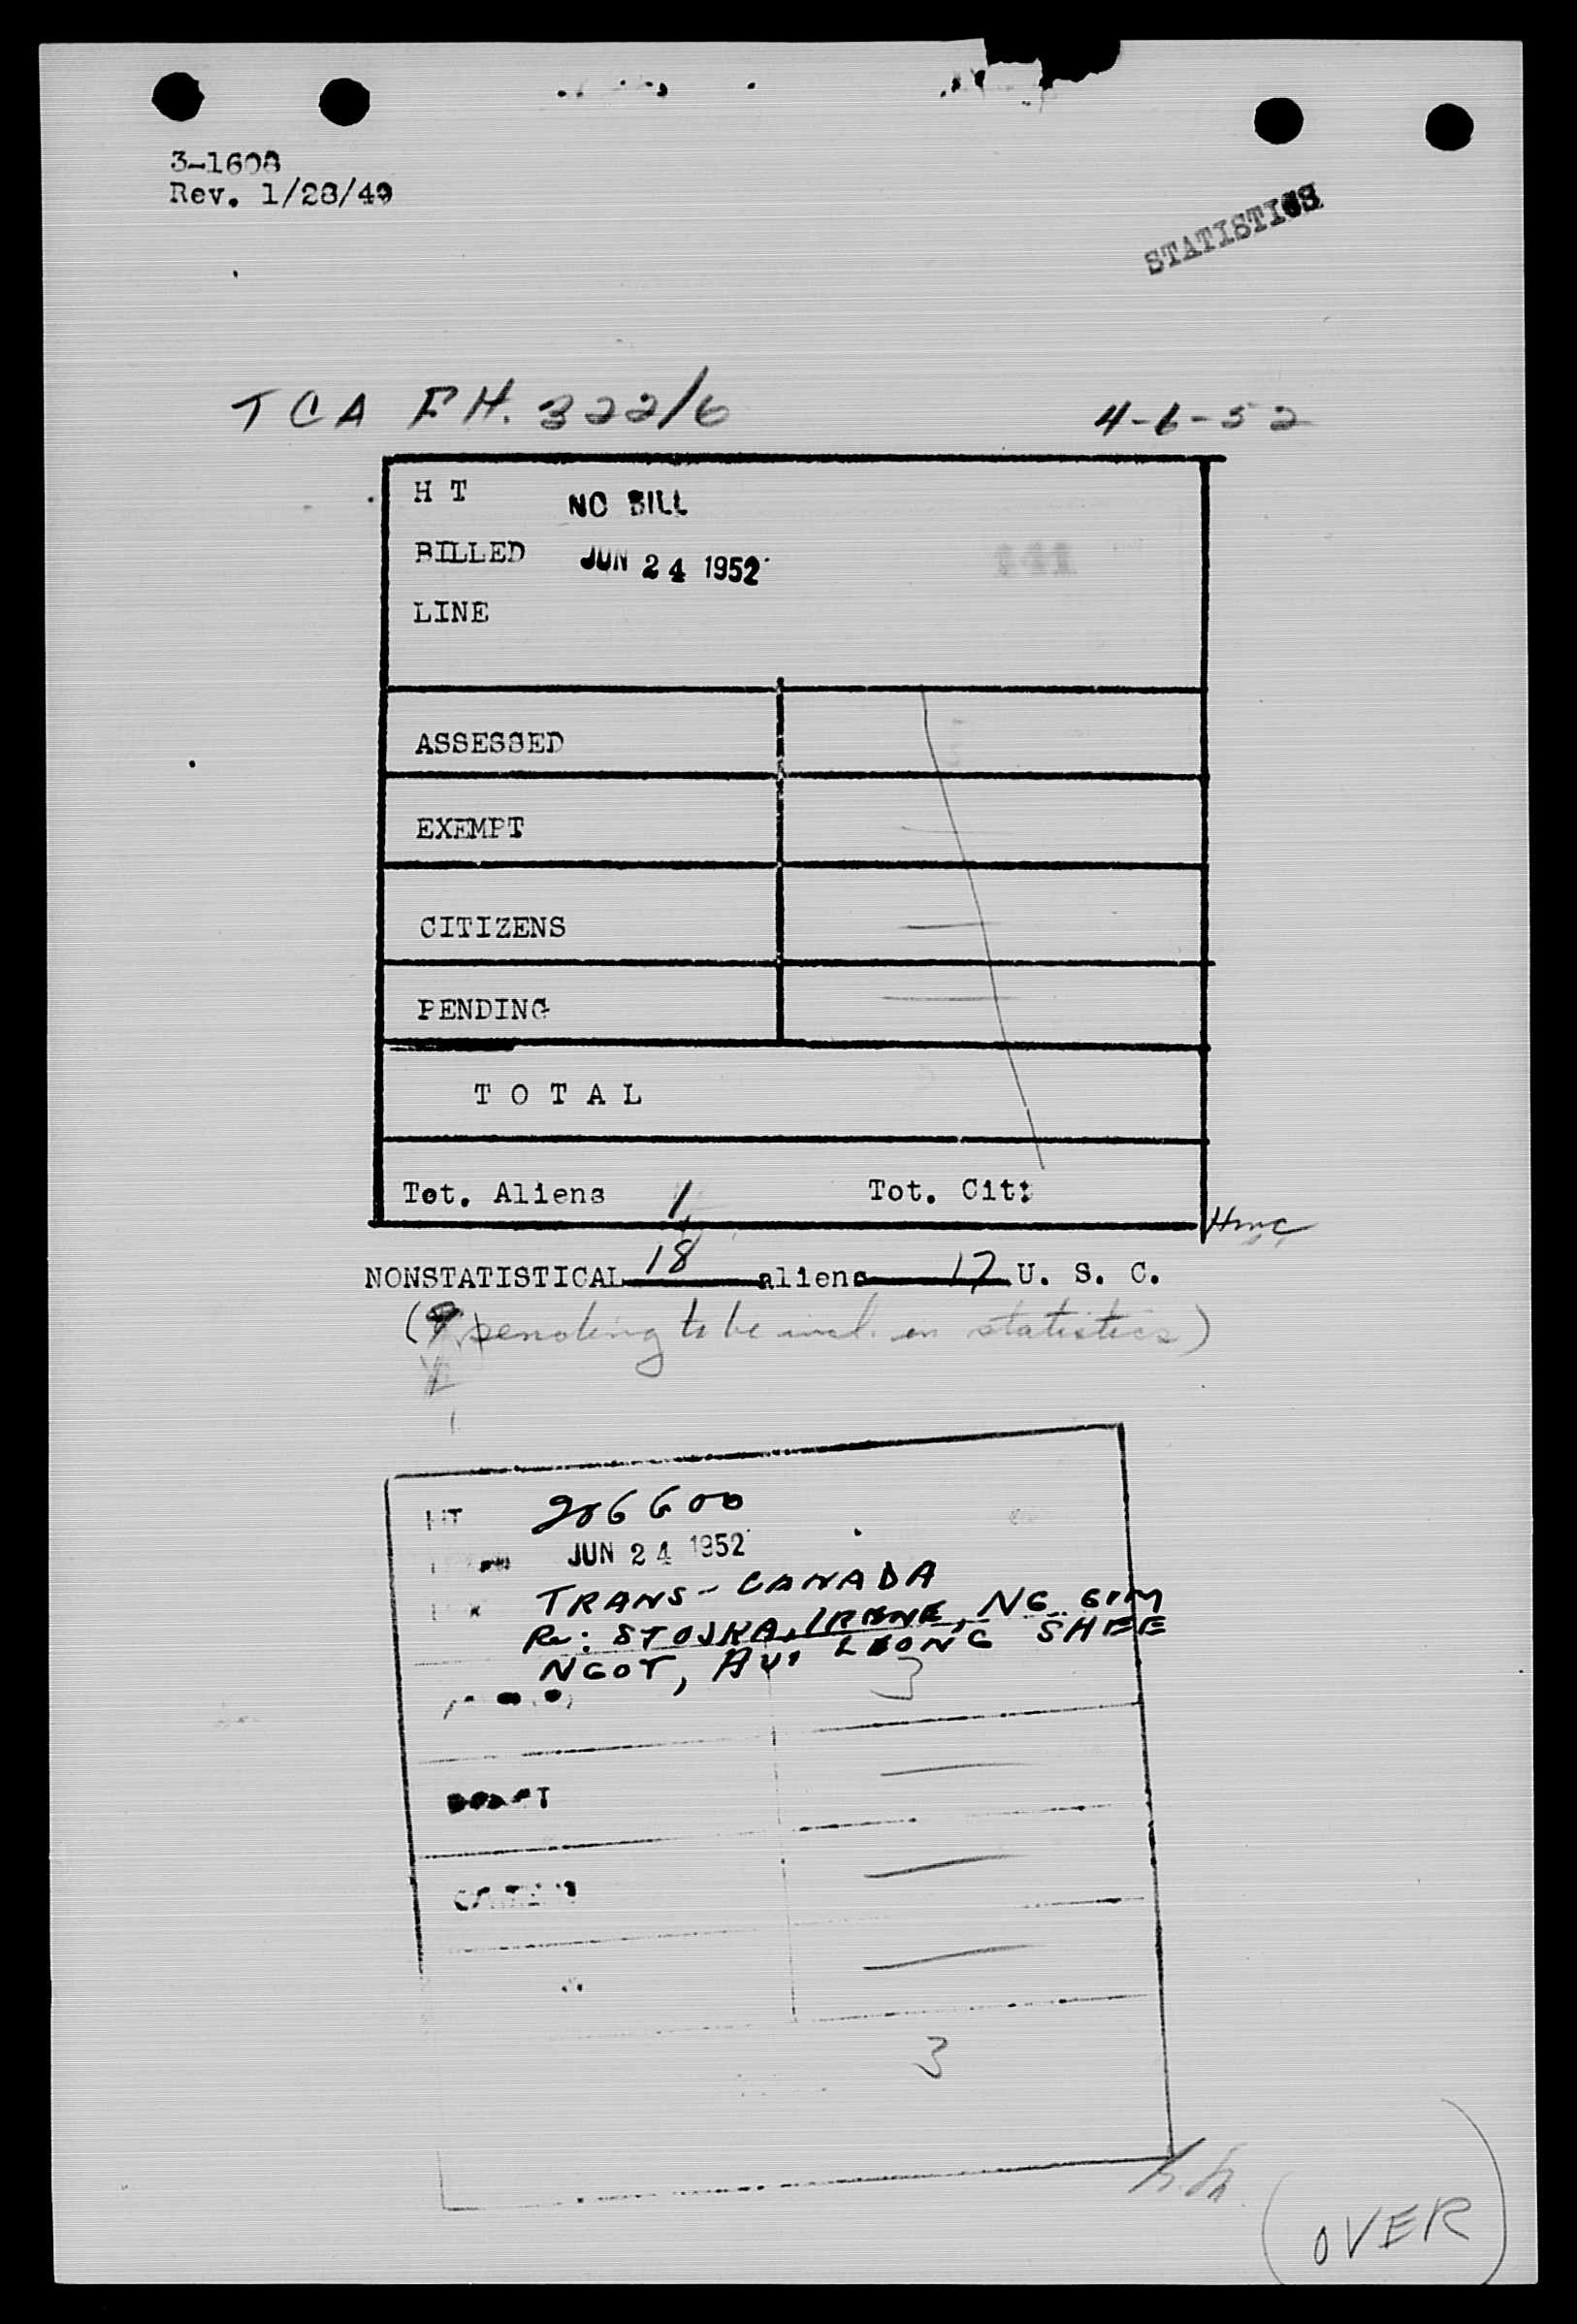 3-1608
Rev. 1/28/49
STATISTICS
TCA FH. 322/6 4-6-52
H T NO BILL
BILLED JUN 24 1952
LINE
ASSESSED
EXEMPT
CITIZENS
PENDING
T O T A L
Tot. Aliens 1 Tot. Cit:
Hmc
NONSTATISTICAL 18 aliens 17 U. S. C.
pending to be incl. in statistics)
HT 206600
JUN 24 1952
TRANS-CANADA
Re: STOJKA, IRENE, NG GIM
NGOT, AUI LEONG SHEE
3
3
(OVER)